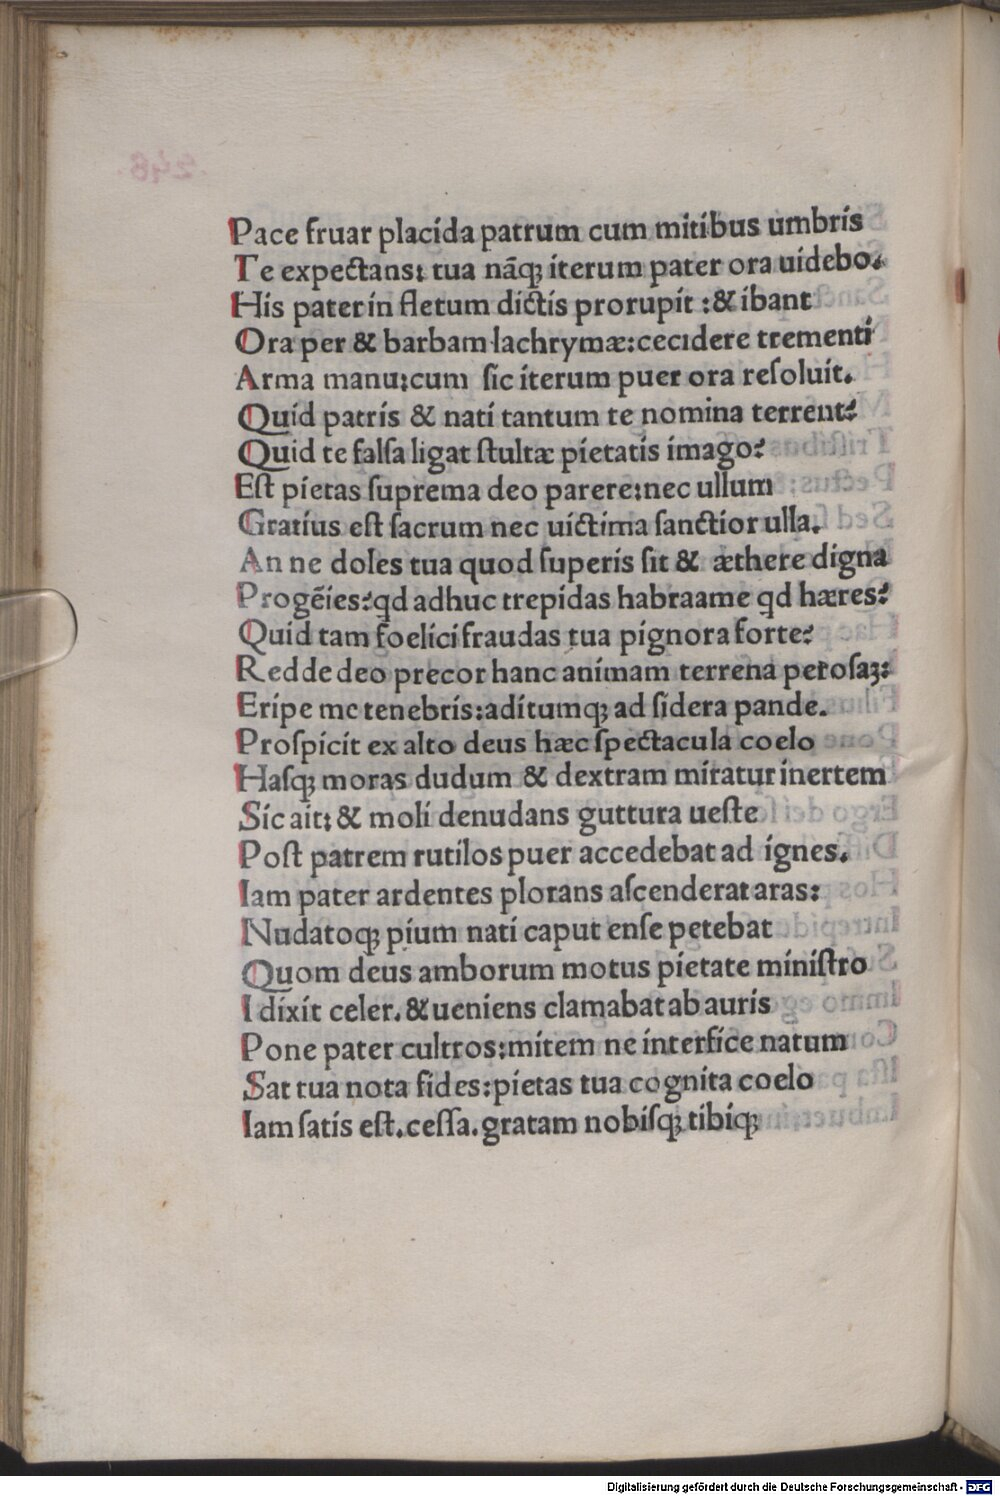 Pace fruar placida patrum cum mitibus umbris
Te expectans: tua nāqꝫ iterum pater ora uidebo.
His pater in fletum dictis prorupit :& ibant
Ora per & barbam lachrymæ:cecidere trementi
Arma manu:cum sic iterum puer ora resoluit.
Quid patris & nati tantum te nomina terrent?
Quid te falsa ligat stultæ pietatis imago?
Est pietas suprema deo parere:nec ullum
Gratius est sacrum nec uictima sanctior ulla.
An ne doles tua quod superis sit & æthere digna
Progēies?qd adhuc trepidas habraame qd hæres?
Quid tam foelici fraudas tua pignora forte?
Redde deo precor hanc animam terrena perosaꝫ:
Eripe me tenebris:aditumqꝫ ad sidera pande.
Prospicit ex alto deus hæc spectacula coelo
Hasqꝫ moras dudum & dextram miratur inertem
Sic ait: & moli denudans guttura ueste
Post patrem rutilos puer accedebat ad ignes.
Iam pater ardentes plorans ascenderat aras:
Nudatoqꝫ pium nati caput ense petebat
Quom deus amborum motus pietate ministro
I dixit celer. & ueniens clamabat ab auris
Pone pater cultros:mitem ne interfice natum
Sat tua nota fides:pietas tua cognita coelo
Iam satis est.cessa.gratam nobisqꝫ tibiqꝫ
Digitalisierung gefördert durch die Deutsche Forschungsgemeinschaft - DFG